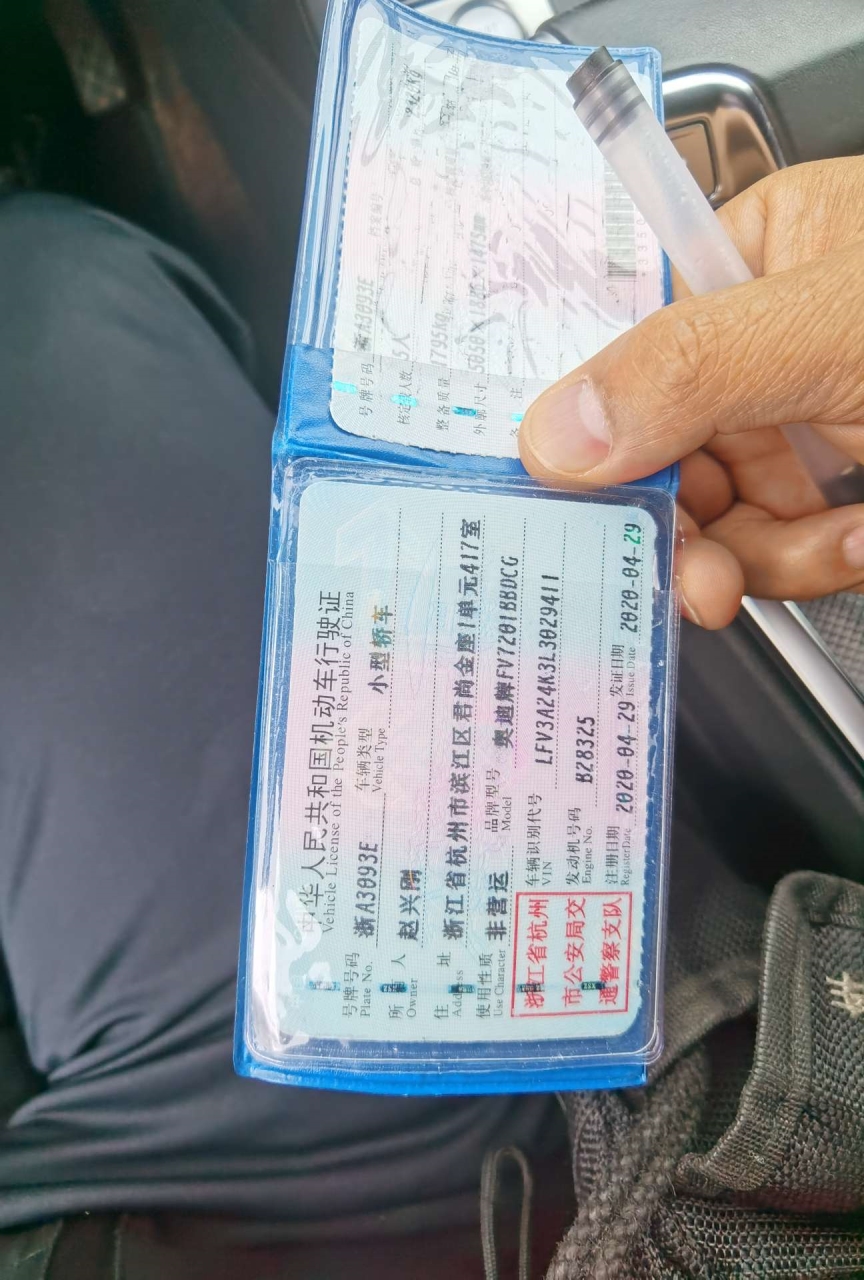 中华人民共和国机动车行驶证
Vehicle License of the People's Republic of China
号牌号码 浙A3093E 车辆类型 小型轿车
Plate No. Vehicle Type
所 人 赵兴刚
Owner
住 址 浙江省杭州市滨江区君尚金座1单元417室
Address
使用性质 非营运 品牌型号 奥迪牌FV7201BBDCG
Use Character Model
浙江省杭州
市公安局交
通警察支队
车辆识别代号 LFV3A24K3L3029411
VIN
发动机号码 B28325
Engine No.
注册日期 2020-04-29 发证日期 2020-04-29
Register Date Issue Date
号牌号码 浙A3093E 档案编号
核定载人数 5人
整备质量 1795Kg
外廓尺寸
备 注